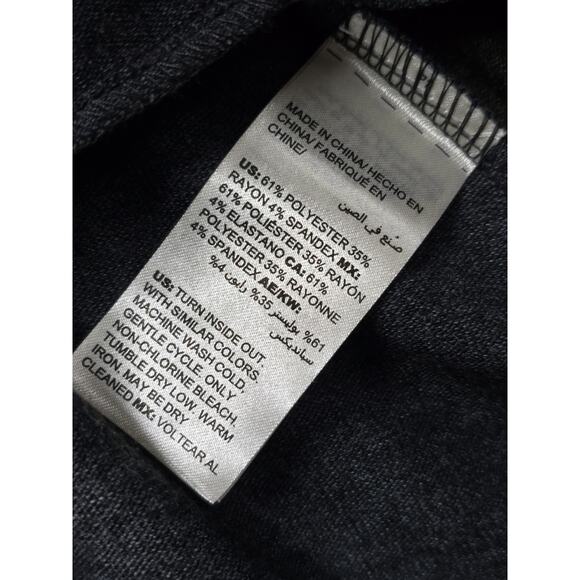 MADE IN CHINA/ HECHO EN
CHINA/ FABRIQUÉ EN
CHINE/
صُنع في الصين
US: 61% POLYESTER 35%
RAYON 4% SPANDEX MX:
61% POLIÉSTER 35% RAYÓN
4% ELASTANO CA: 61%
POLYESTER 35% RAYONNE
4% SPANDEX AE/KW:
61% بوليستر 35% رايون 4%
سباندیكس
US: TURN INSIDE OUT.
WITH SIMILAR COLORS.
MACHINE WASH COLD,
GENTLE CYCLE. ONLY
NON-CHLORINE BLEACH.
TUMBLE DRY LOW. WARM
IRON. MAY BE DRY
CLEANED MX: VOLTEAR AL